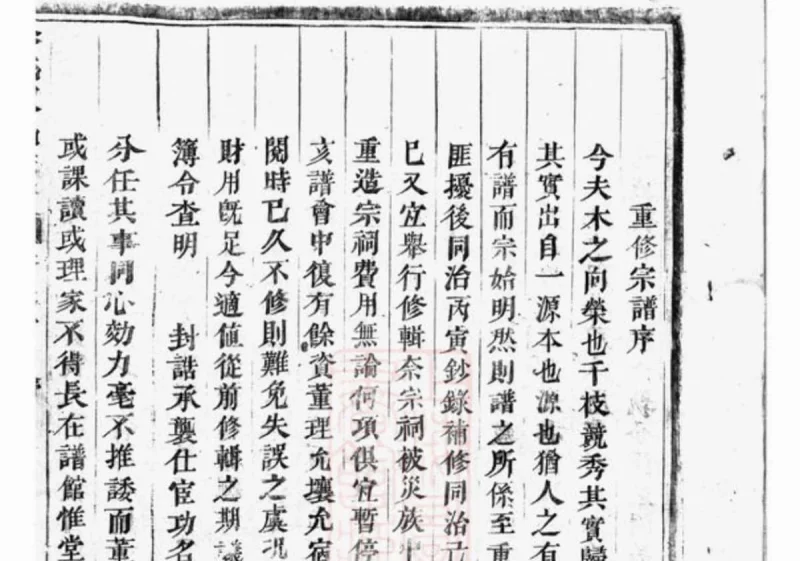 重修宗譜序
今夫木之向榮也千枝競秀其實歸
其實出自一源本也源也猶人之有
有譜而宗始明然則譜之所係至重
匪擾後同治丙寅鈔錄補修同治己
巳又宜舉行修輯奈宗祠被災族中
重造宗祠費用無論何項俱宜暫停
亥譜會中復有餘資董理允壤允宿
閱時已久不修則難免失誤之虞況
財用既足今適值從前修輯之期
簿令查明 封誥承襲仕宦功名
分任其事同心効力毫不推諉而董
或課讀或理家不得長在譜館惟堂